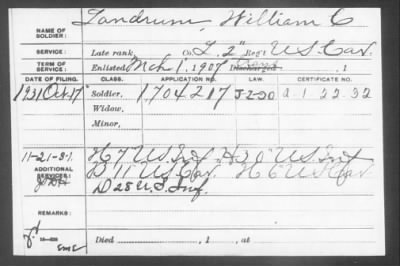 NAME OF SOLDIER: Landrum, William C
SERVICE: Late rank, Co. L, 2" Reg't U.S. Cav.
TERM OF SERVICE: Enlisted Mch 1, 1907 Discharged , 1
DATE OF FILING. CLASS. APPLICATION NO. CERTIFICATE NO.
1931 Oct. 17 Soldier, 1704217 J-2-20 A-1-22-32
Widow,
Minor,
11-21-31. H 7 U.S. Inf. H 20" U.S. Inf
ADDITIONAL SERVICES: B 11" U.S. Cav. H 6" U.S. Cav
D 28 U.S. Inf.
REMARKS:
Died , 1 , at